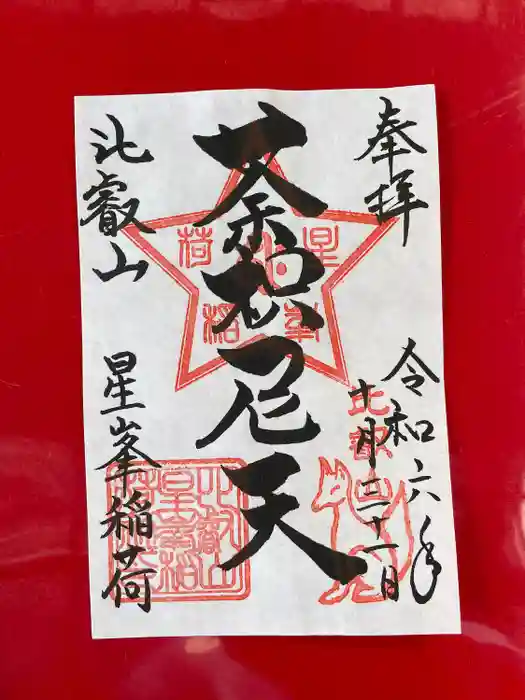 奉拝
令和六年
十月二十一日
荼枳尼天
比叡山
星峯稲荷
星峯
稲荷
比叡山